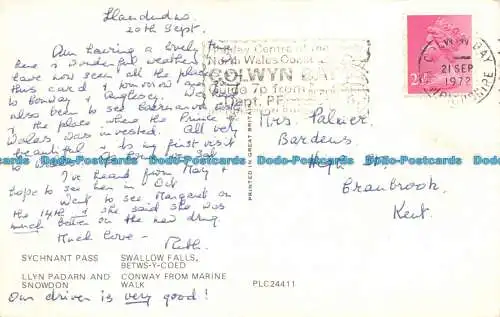 Llandudno.
20th Sept.
Am having a lovely time
here & wonderful weather. We
have now seen all the places
this card & tomorrow
to Conway & Anglesey. We
also been to see Caernarvon
& the place where the Prince of
Wales was invested. All very
beautiful & is my first visit
to
I've heard from May &
hope to see her in Oct
Went to see Margaret on
the 14th & she said she was
much better on the new drug.
Much love –
Ruth.
SYCHNANT PASS
SWALLOW FALLS,
BETWS-Y-COED
LLYN PADARN AND
SNOWDON
CONWAY FROM MARINE
WALK
PLC24411
Our driver is very good!
PRINTED IN GREAT BRITAIN
Holiday Centre of the
North Wales Coast
COLWYN BAY
Guide 7p from
Dept. PF
COLWYN BAY
21 SEP
1972
DENBIGHSHIRE
2½P
Mrs. Palmer
Bardens
High St.
Cranbrook,
Kent.
Delcampe.net bo-postcards